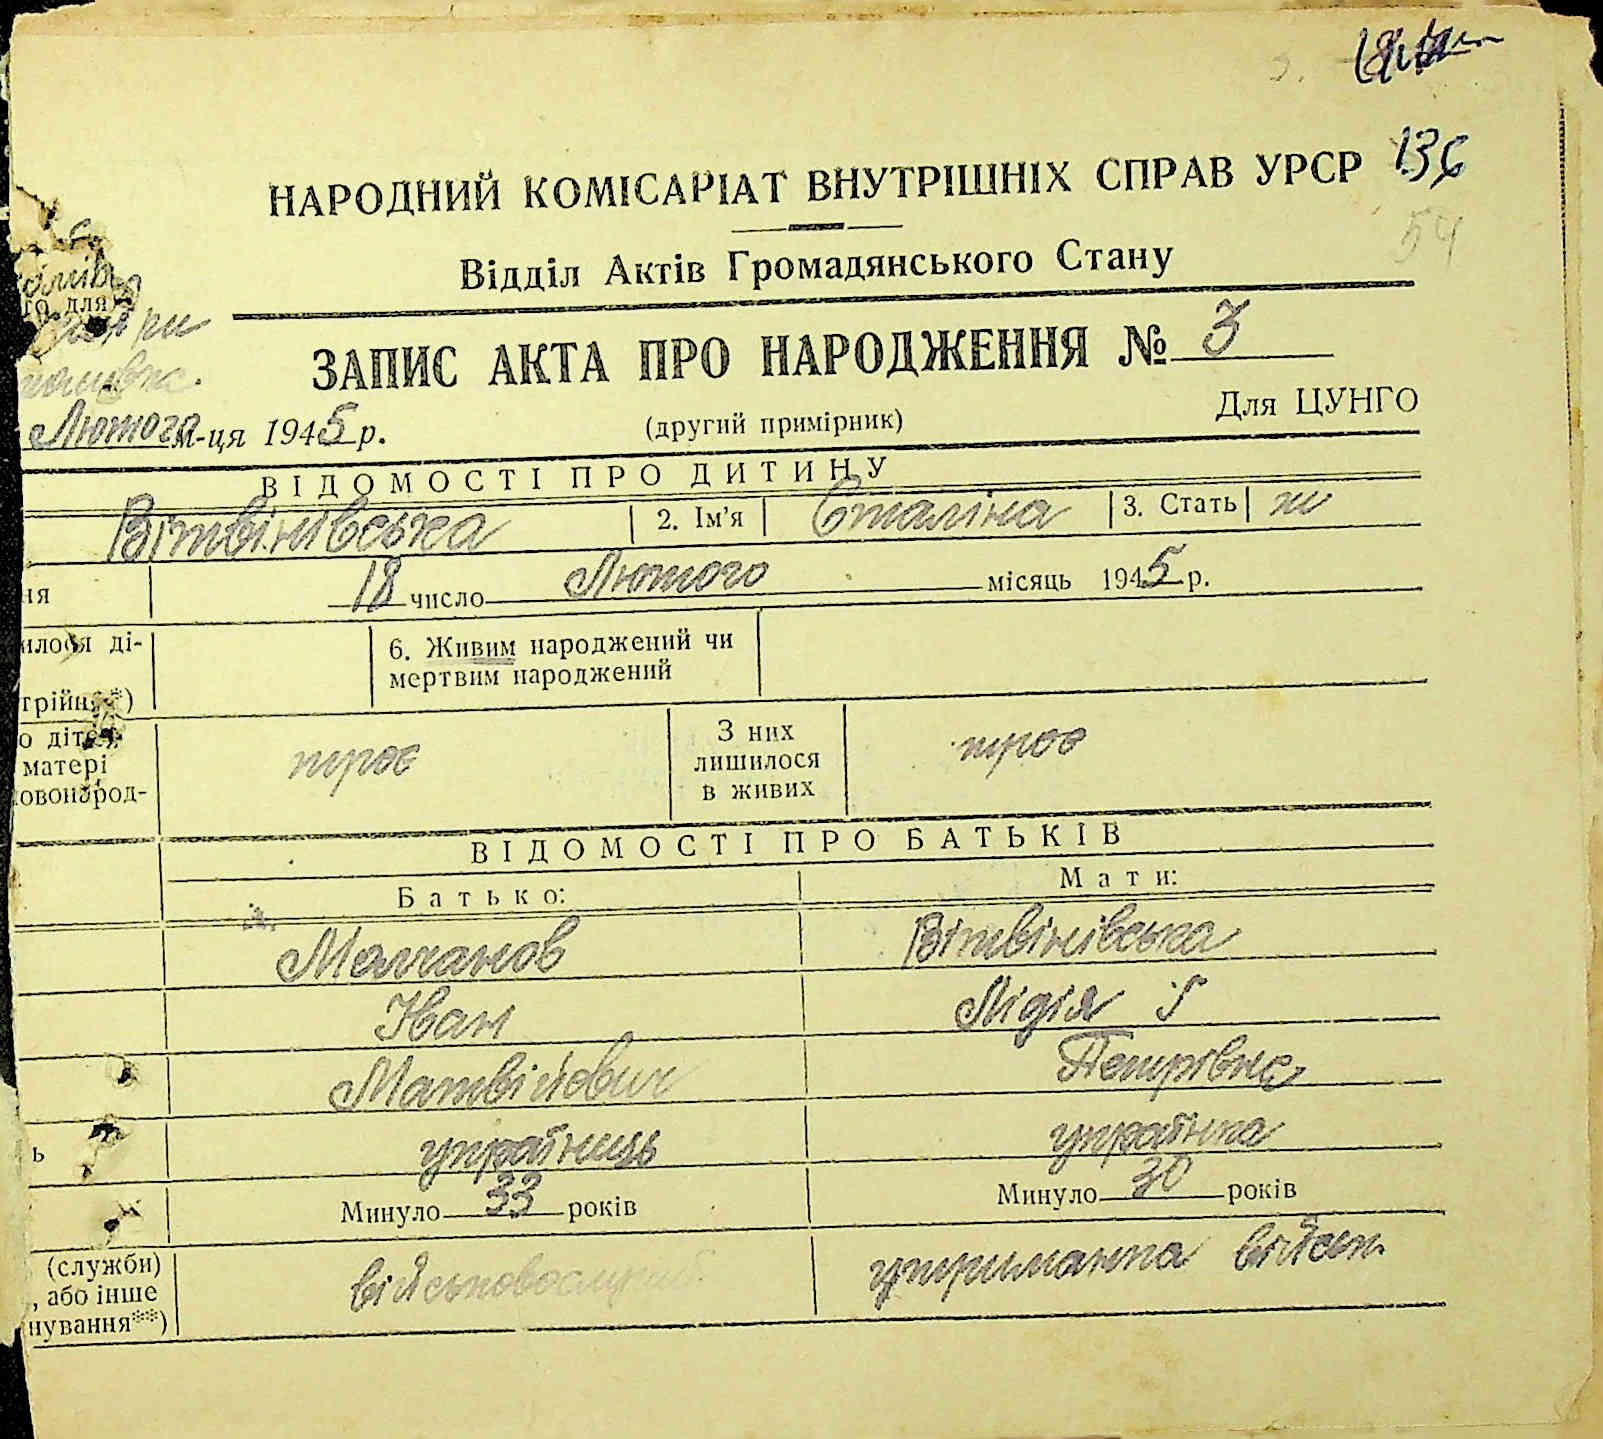 136
НАРОДНИЙ КОМІСАРІАТ ВНУТРІШНІХ СПРАВ УРСР
54
Відділ Актів Громадянського Стану
ЗАПИС АКТА ПРО НАРОДЖЕННЯ № 3
Лютого м-ця 1945 р. (другий примірник) Для ЦУНГО
ВІДОМОСТІ ПРО ДИТИНУ
Вітвінівська 2. Ім'я Сталіна 3. Стать ж
ня 18 число Лютого місяць 1945 р.
илося ді- 6. Живим народжений чи
мертвим народжений
трійня*)
о дітей троє З них лишилося в живих троє
матері
овонарод-
ВІДОМОСТІ ПРО БАТЬКІВ
Батько: Мати:
Молчанов Вітвінівська
Іван Лідія
Матвійович Петрівна
ь українець українка
Минуло 33 років Минуло 30 років
(служби) військовослужб утриманка військ.
, або інше
нування**)